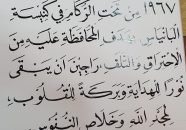 ١٩٦٧ مِنْ تَحْتِ الرُّكَامِ فِي كَنِيسَةِ
البَانْيَاسِ بِهَدَفِ المُحَافَظَةِ عَلَيْهِ مِنَ
الاحْتِرَاقِ وَالتَّلَفِ، رَاجِيْنَ أَنْ يَبْقَى
نُورًا لِلْهِدَايَةِ وَبَرَكَةً لِلْقُلُوبِ،
لِمَجْدِ اللهِ وَخَلَاصِ النُّفُوسِ